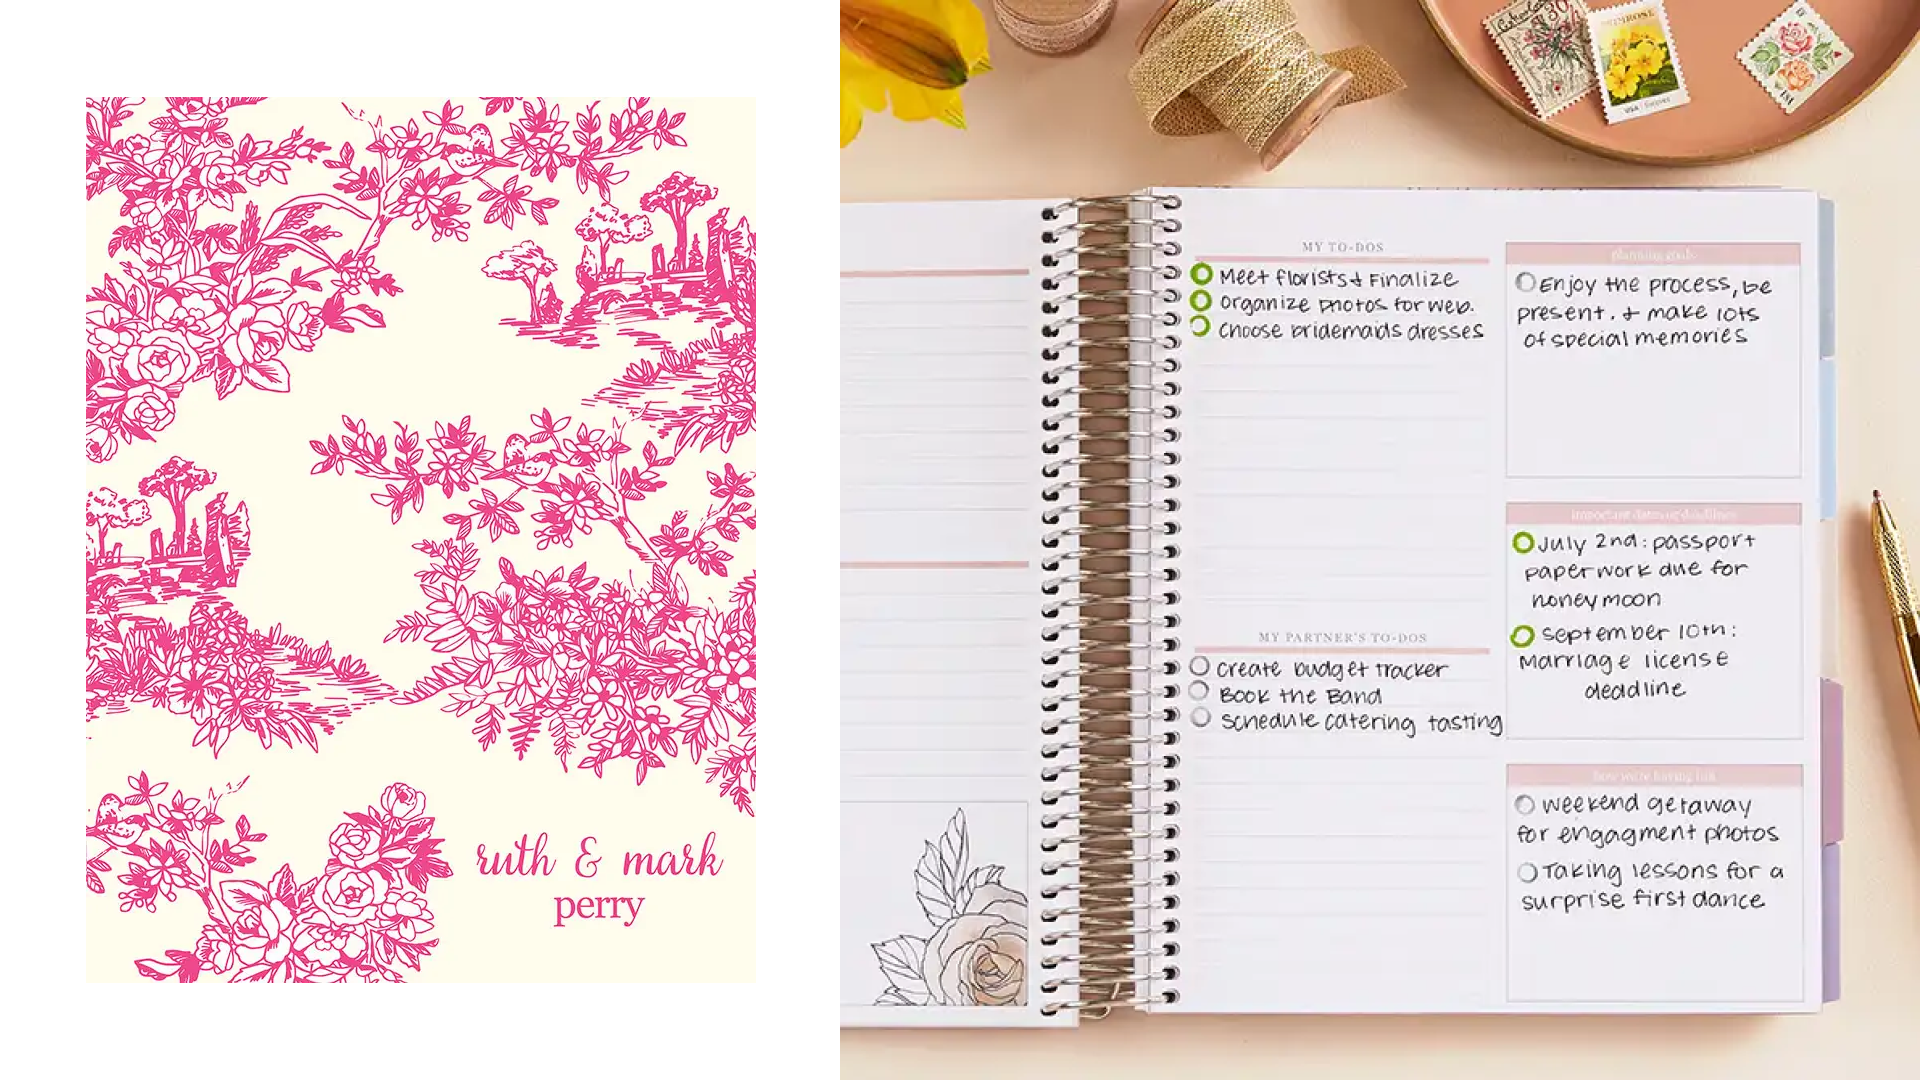 ruth & mark
perry
PRIMROSE
USA FOREVER
MY TO-DOS
Meet florists & Finalize
Organize photos for web.
Choose bridemaids dresses
MY PARTNER'S TO-DOS
Create budget tracker
Book the Band
Schedule catering tasting
planning goals
Enjoy the process, be
present, & make lots
of special memories
important dates & deadlines
July 2nd: passport
paperwork due for
honeymoon
September 10th:
Marriage license
deadline
how we're having fun
weekend getaway
for engagment photos
Taking lessons for a
surprise first dance